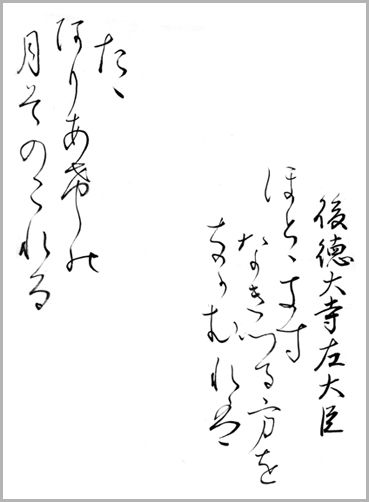 後徳大寺左大臣
ほとゝきす
なきつる方を
なかむれは
たゝ
ありあけの
月そのこれる